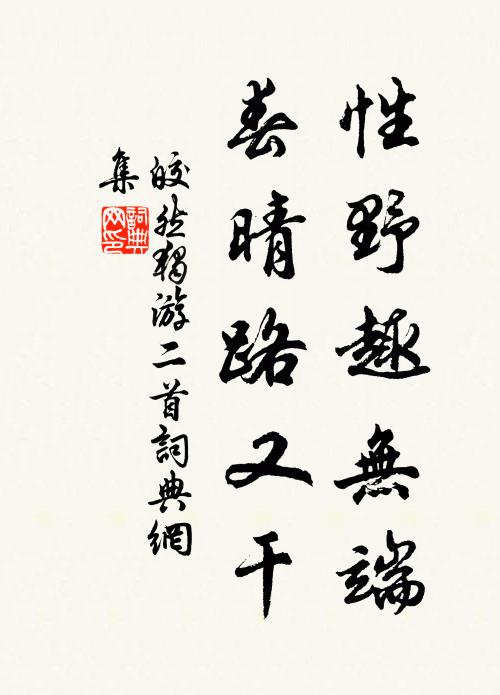 性野趣無端
春晴路又干
皎然獨游二首詞典網
集
詞典网印